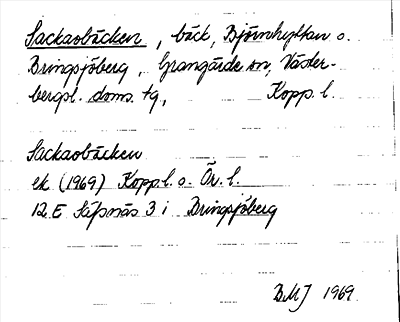 Sackasbäcken, bäck, Björnhyttan o.
Bringsjöberg, Grangärde sn, Väster-
bergsl. doms. tg, Kopp. l.
Sackasbäcken
ek (1969) Kopp. l. o. Ör. l.
12 E Säfsnäs 3 i Bringsjöberg
BMJ 1969.